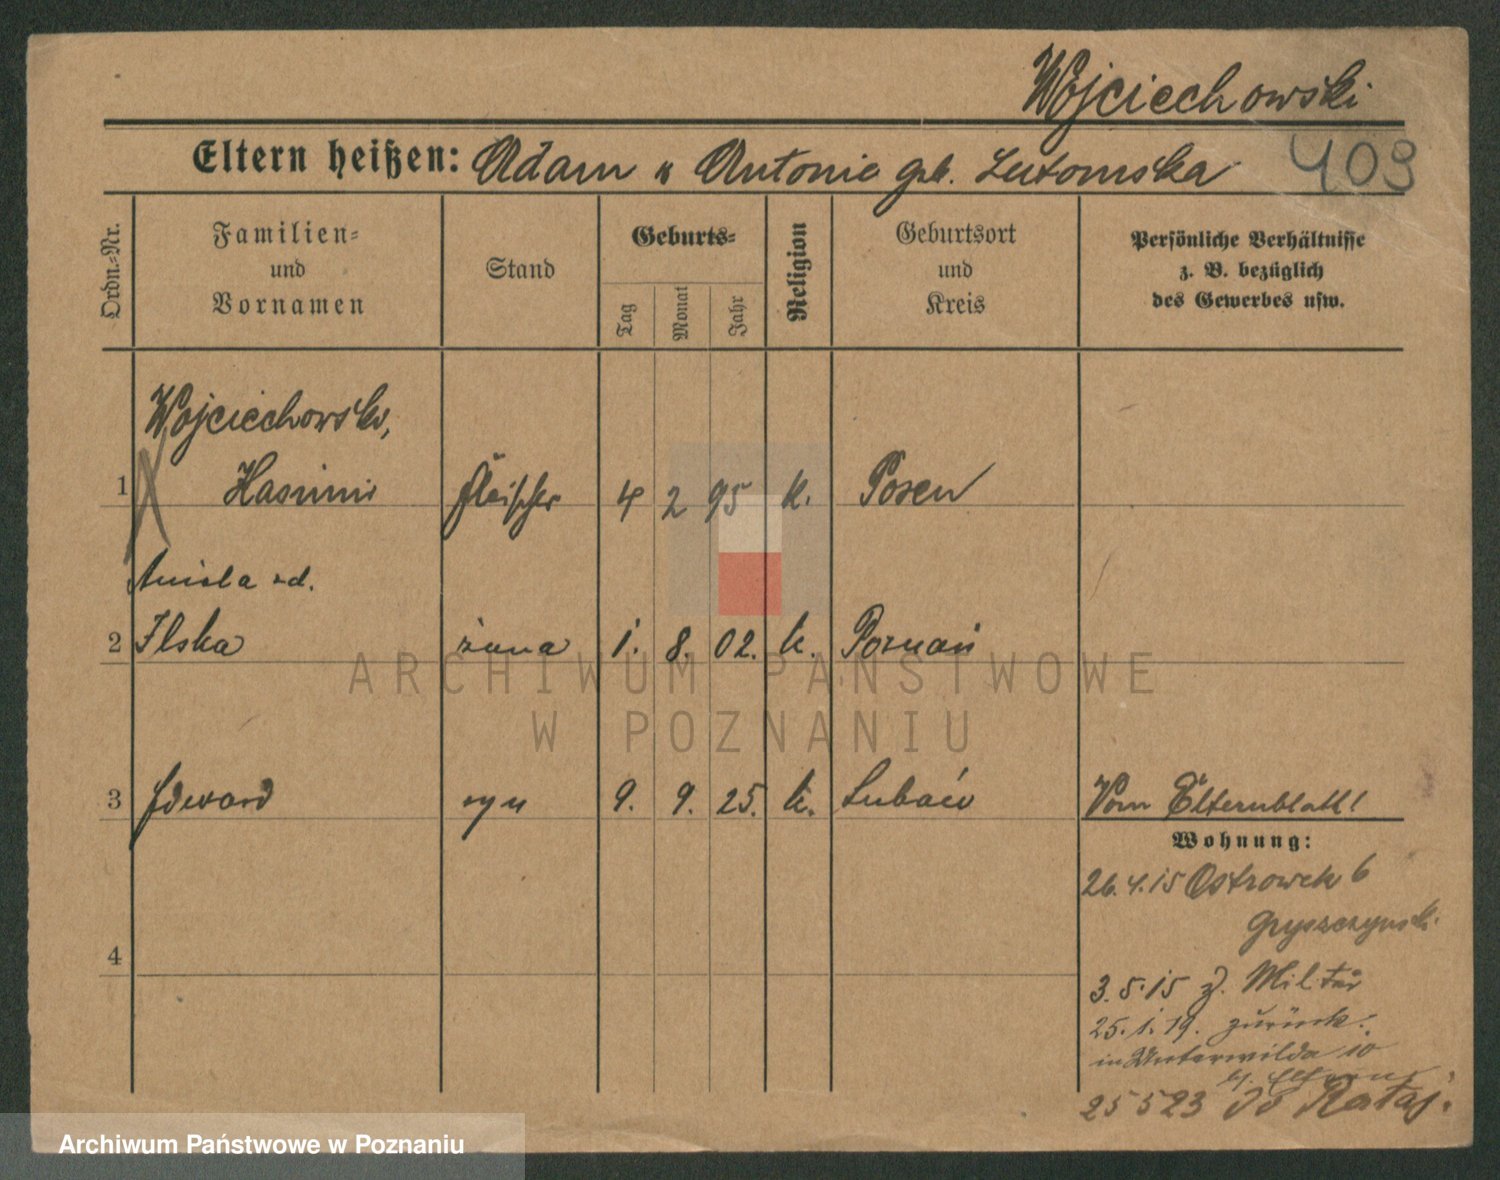 Wojciechowski
409
Eltern heißen: Adam u Antonie geb. Lutomska
Ordn.=Nr.
Familien=
und
Vornamen
Stand
Geburts=
Tag
Monat
Jahr
Religion
Geburtsort
und
Kreis
Persönliche Verhältnisse
z. B. bezüglich
des Gewerbes usw.
Wojciechowski,
1 Kasimir Fleischer 4 2 95 k. Posen
Aniela
2 Ilska żona 1. 8. 02. k. Poznań
3 Edward syn 9. 9. 25. k. Luboń Vom Elternblatt!
Wohnung:
26.4.15 Ostrowek 6
Gryszczynski
4
3.5.15 z. Militär
25.1.19. zurück.
in Unterwilda 10
b. Eltern
25 5 23 Rataj.
ARCHIWUM PAŃSTWOWE
W POZNANIU
Archiwum Państwowe w Poznaniu